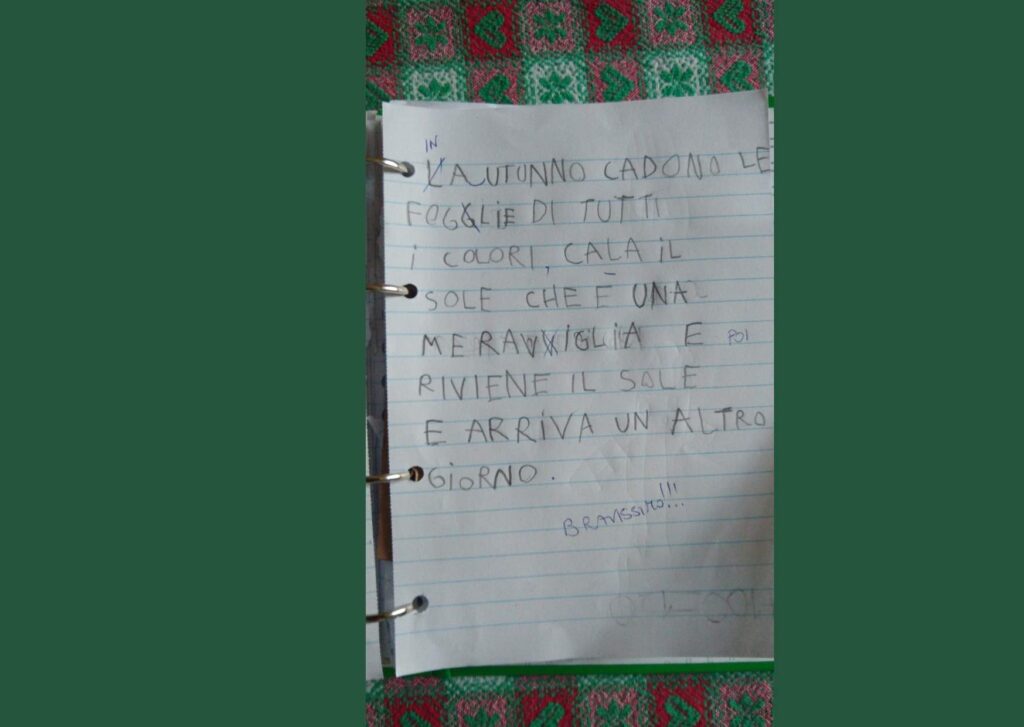 IN
L'AUTUNNO CADONO LE
FOGLIE DI TUTTI
I COLORI, CALA IL
SOLE CHE È UNA
MERAVIGLIA E POI
RIVIENE IL SOLE
E ARRIVA UN ALTRO
GIORNO.
BRAVISSIMO!!!